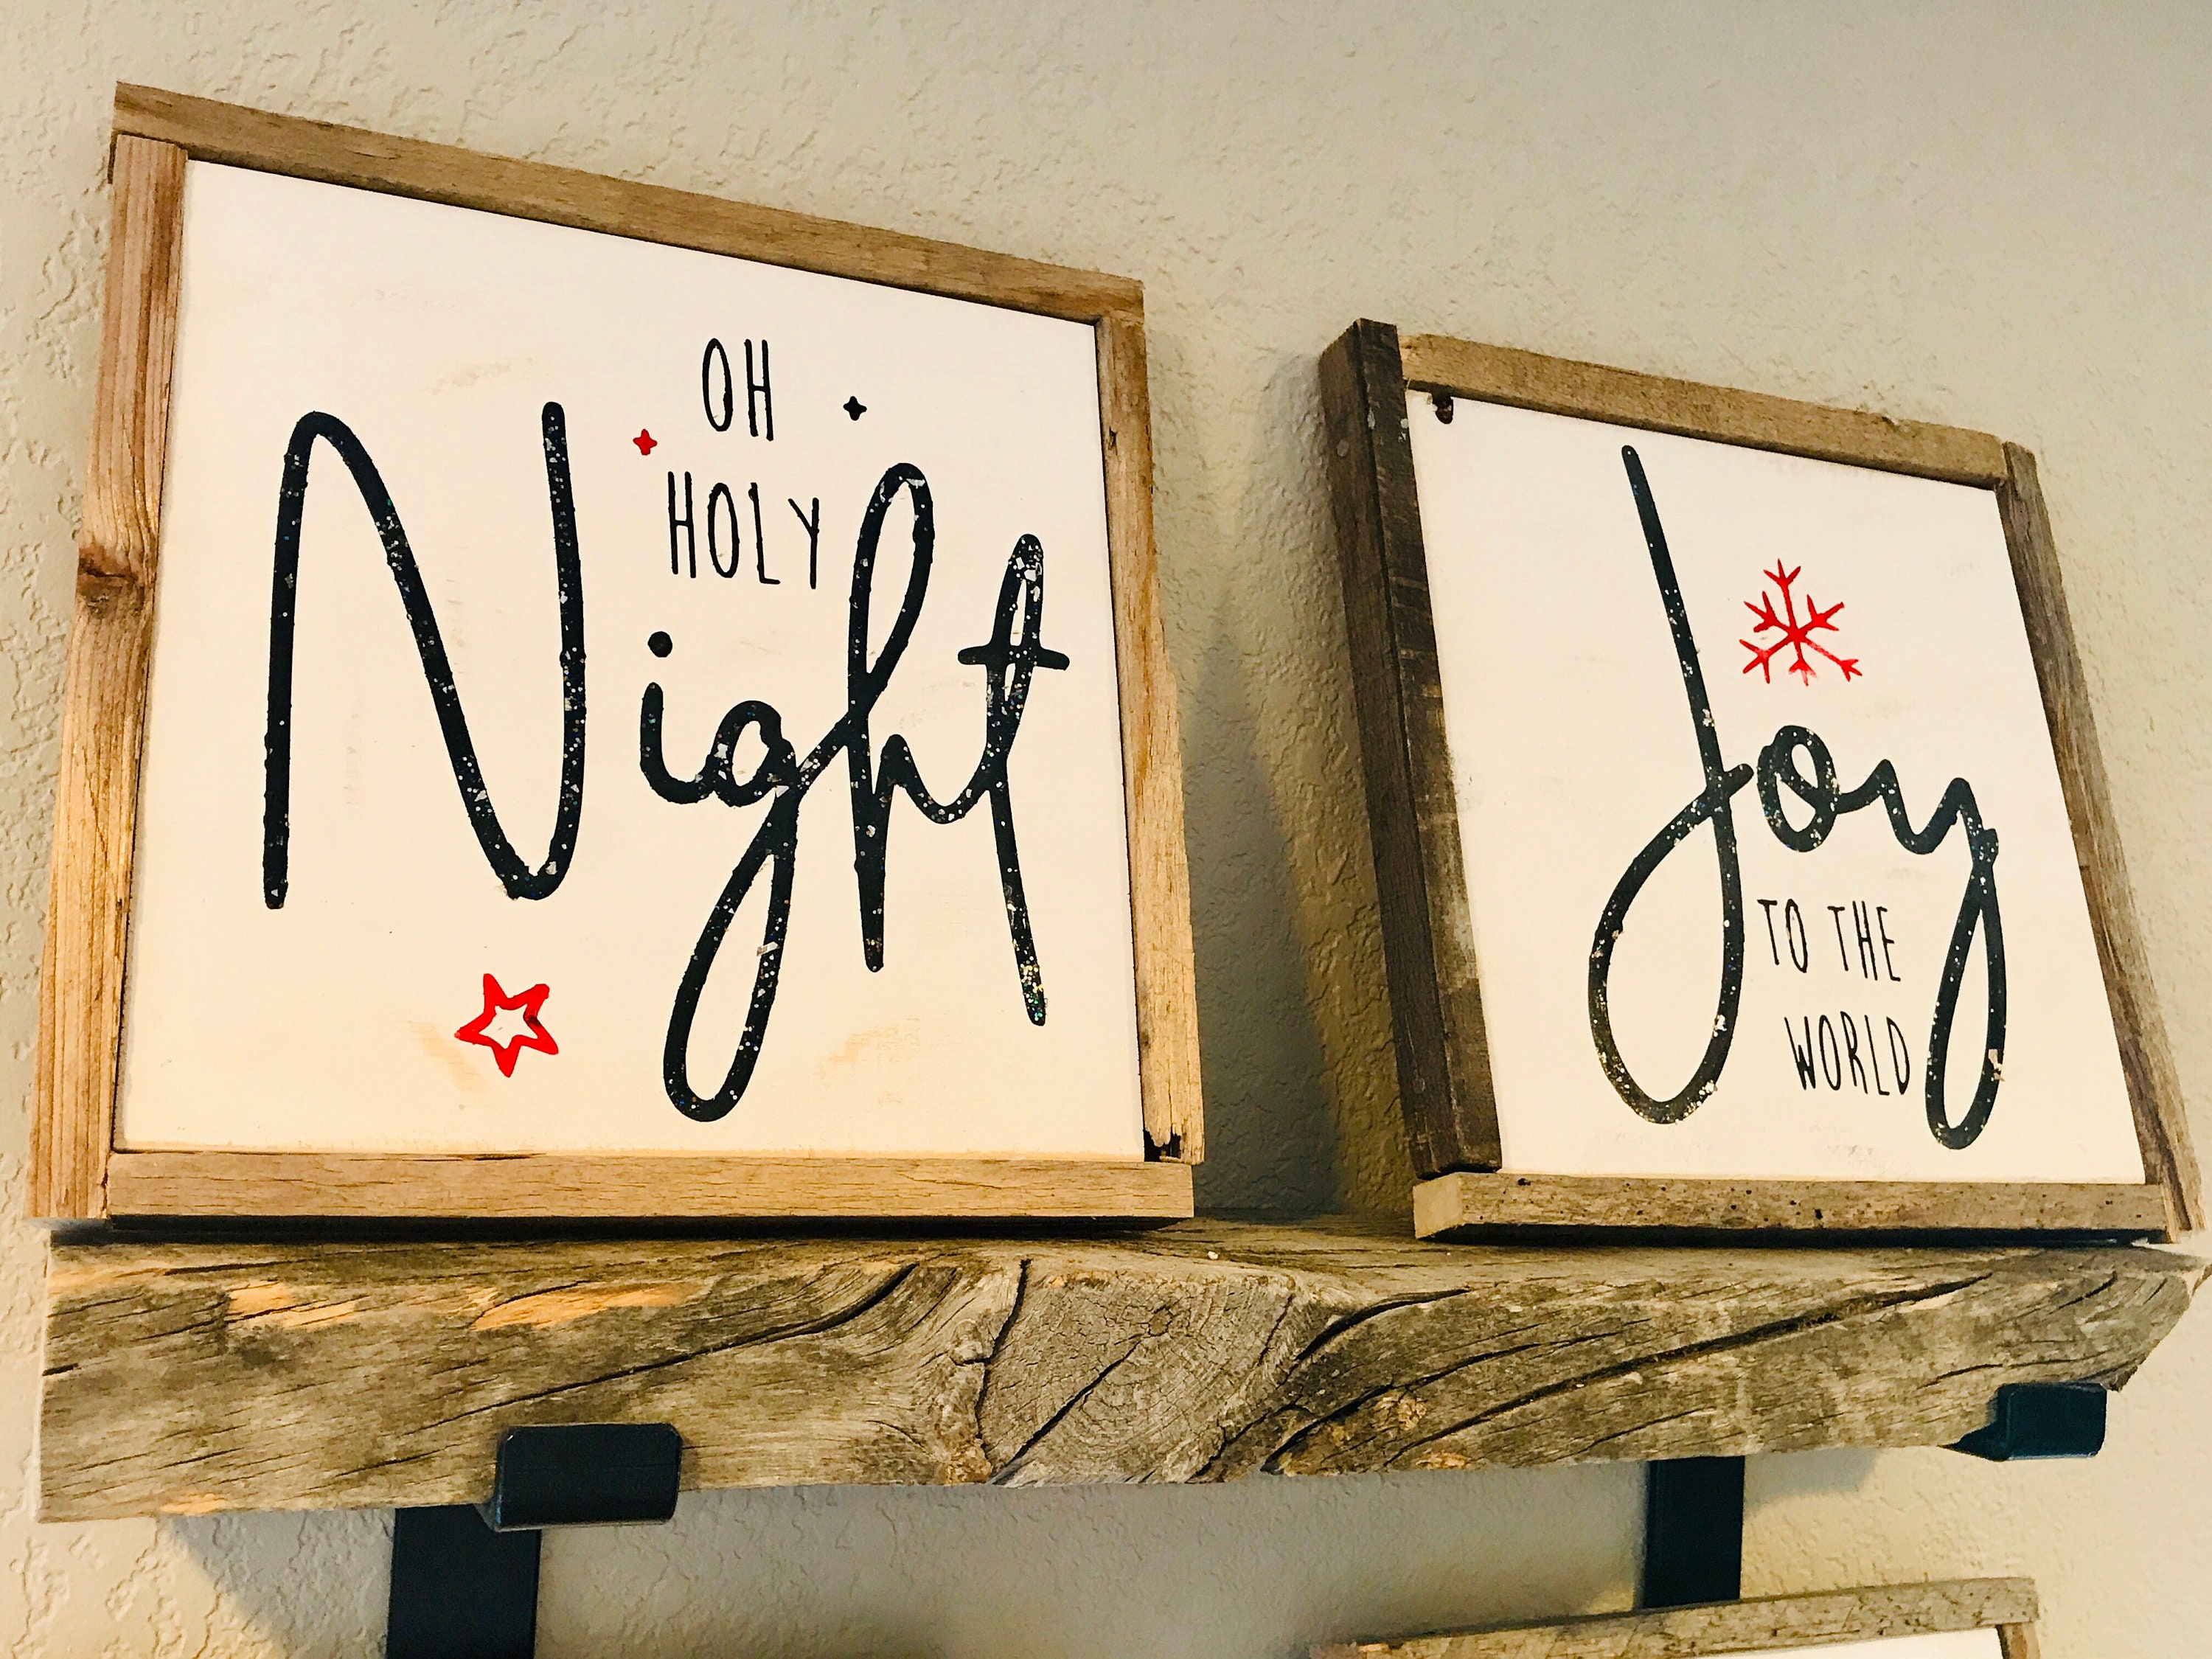 OH
HOLY
Night
Joy
TO THE
WORLD